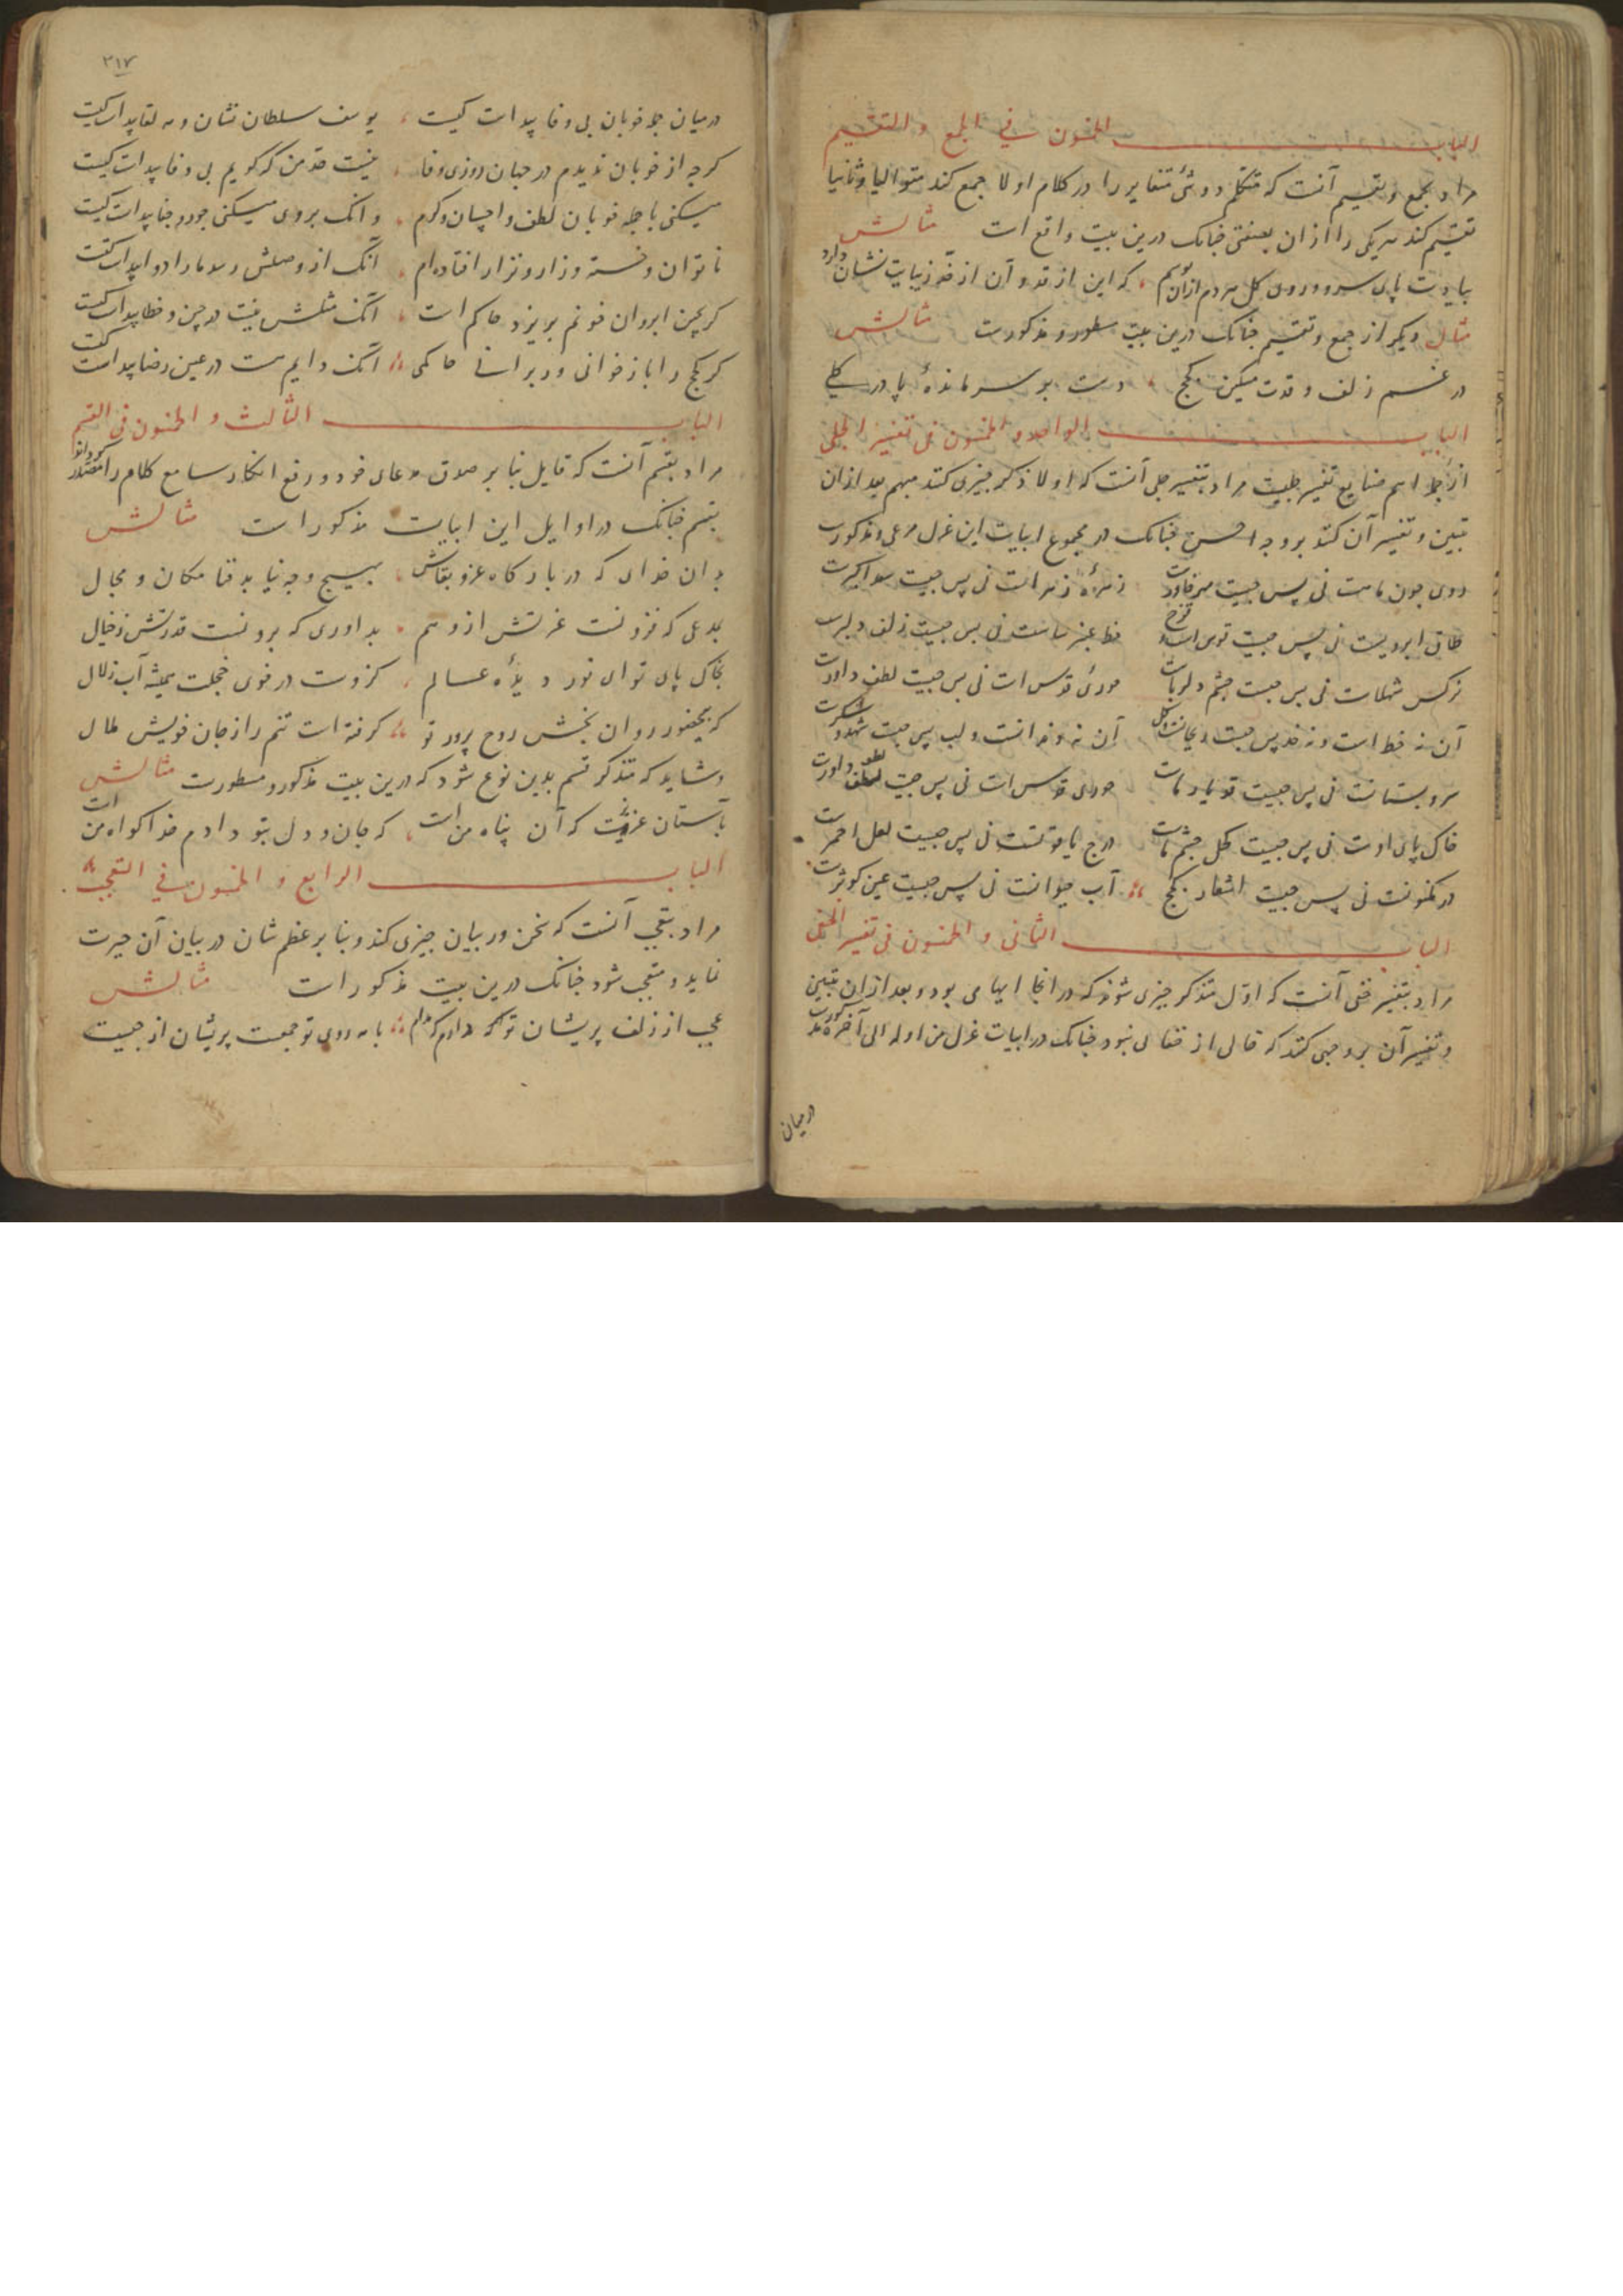 الباب الخمسون في الجمع والتقسیم
مراد بجمع و تقسیم آنست که متکلم دو شیٔ متغایر را در کلام اولا جمع کند متوالیا و ثانیا
تقسیم کند هر یکی را ازان بصفتی چنانک درین بیت واقع است مثالش
بیادت پای سرو و روی گل هر دم ازان بوسم که این از قد و آن از خد زیبایت نشان دارد
مثال دیگر از جمع و تقسیم چنانک درین بیت مسطور و مذکورست مثالش
در غم زلف و قدت مسکین کجج دست بر سر مانده پا در گلی
الباب الواحد و الخمسون فی تفسیر الجلی
از جمله اسم صنایع تفسیر جلیست مراد بتفسیر جلی آنست که اولا ذکر چیزی کند مبهم بعد ازان
تبیین و تفسیر آن کند بر وجه احسن چنانک در مجموع ابیات این غزل مرعی و مذکورست
روی چون ماهست نی پس چیست مهر خاورست زهره زهراست نی پس چیست سعد اکبرست
طاق ابرویست نی پس چیست قوس است و قزح خط عنبر ساست نی پس چیست زلف دلبرست
نرگس شهلاست نی پس چیست چشم دلرباست حوری فردوس است نی پس چیست لطف داورست
آن نه خط است و نه خد پس چیست ریحانست گل آن نه دندانست و لب پس چیست شهد و شکرست
سرو بستانست نی پس چیست قد یار ماست حوری فردوس است نی پس چیست لطف داورست
خاک پای اوست نی پس چیست کحل چشم ماست درج یاقوتست نی پس چیست لعل احمرست
در مکنونست نی پس چیست اشعار کجج آب حیوانست نی پس چیست عین کوثرست
الباب الثانی و الخمسون فی تفسیر الخفی
مراد بتفسیر خفی آنست که اول متذکر چیزی شوند که در انجا ابهامی بود و بعد ازان تبیین
و تفسیر آن بر وجهی کند که خالی از خفائی نبود چنانک در ابیات غزل من اوله الی آخره مذکورست
درمیان
۳۱۷
درمیان جمله خوبان بی وفا پیداست کیست یوسف سلطان نشان و مه لقا پیداست کیست
گرچه از خوبان ندیدم در جهان روزی وفا نیست حد من که گویم بی وفا پیداست کیست
میکنی با جمله خوبان لطف و احسان و کرم وانک بر وی میکنی جور و جفا پیداست کیست
ناتوان و خسته و زار و نزار افتاده‌ام آنک از وصلش رسد ما را دوا پیداست کیست
گر بچین ابروان خونم بریزد حاکم است آنک مثلش نیست در چین و خطا پیداست کیست
گر کجج را باز خوانی ور برانی حاکمی آنک دایم هست در عین رضا پیداست کیست
الباب الثالث و الخمسون فی القسم
مراد بقسم آنست که قایل بنا بر صدق مدعای خود و رفع انکار سامع کلام را مصدر گرداند
بقسم چنانک در اوایل این ابیات مذکور است مثالش
بدان خدای که در بارگاه عز و بقاش بهیچ وجه نیابد فنا مکان و مجال
بدعی که فزونست عزتش از وهم بداوری که برونست قدرتش ز خیال
بخاک پای تو ای نور دیدهٔ عالم کزوست در خوی خجلت همیشه آب زلال
که بیحضور روان بخش روح پرور تو گرفته است تنم را ز جان خویش ملال
و شاید که متذکر قسم بدین نوع شود که درین بیت مذکور و مسطورست مثالش
بآستان عزیزت که آن پناه من است که جان و دل بتو دادم خدا گواه من است
الباب الرابع و الخمسون فی التعجب
مراد بتعجب آنست که سخن ور بیان چیزی کند و بنا بر عظم شان در بیان آن حیرت
نماید و متعجب شود چنانک درین بیت مذکور است مثالش
عجب از زلف پریشان تو دارم که مدام با مه روی تو جمعست پریشان از چیست